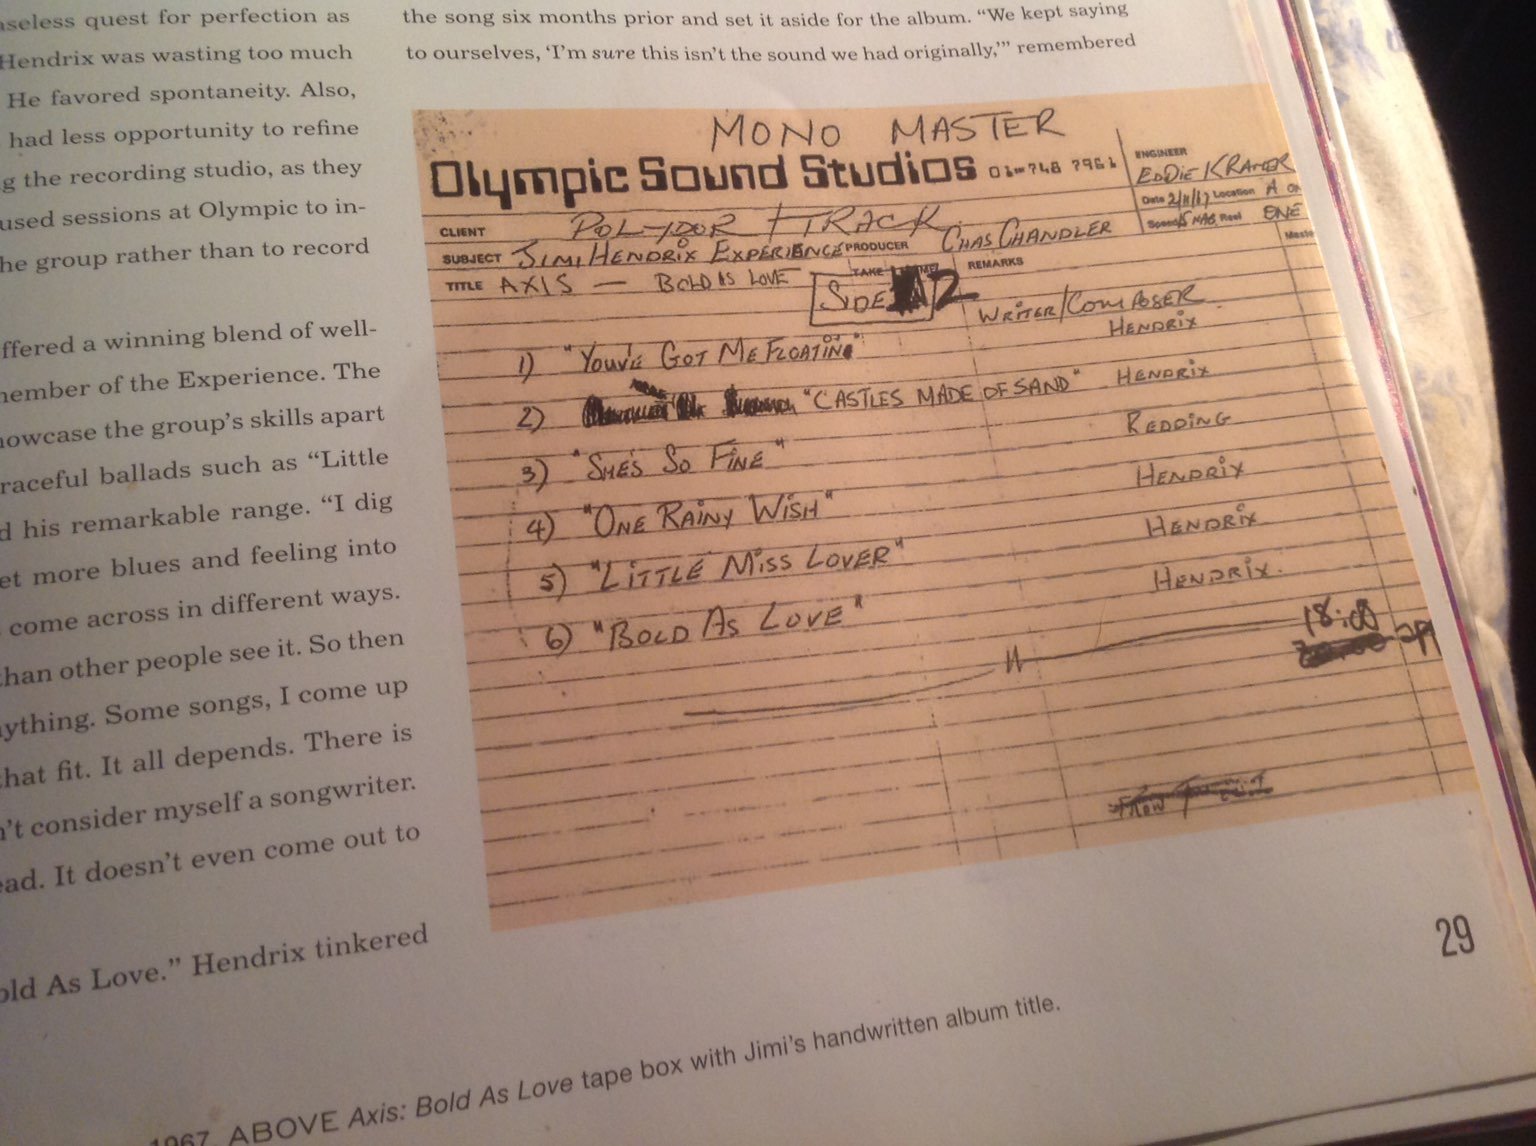 seless quest for perfection as
Hendrix was wasting too much
He favored spontaneity. Also,
had less opportunity to refine
g the recording studio, as they
used sessions at Olympic to in-
he group rather than to record
ffered a winning blend of well-
member of the Experience. The
howcase the group's skills apart
raceful ballads such as “Little
d his remarkable range. “I dig
et more blues and feeling into
come across in different ways.
than other people see it. So then
nything. Some songs, I come up
that fit. It all depends. There is
n't consider myself a songwriter.
ead. It doesn't even come out to
old As Love.” Hendrix tinkered
the song six months prior and set it aside for the album. “We kept saying
to ourselves, ‘I'm sure this isn't the sound we had originally,’” remembered
MONO MASTER
Olympic Sound Studios 01-748 7961
ENGINEER
EDDIE KRAMER
Date 2/11/67 Location A
CLIENT POLYDOR / TRACK
Speed 15 NAB Reel ONE
SUBJECT JIMI HENDRIX EXPERIENCE PRODUCER CHAS CHANDLER
TITLE AXIS — BOLD AS LOVE TAKE TIME REMARKS
SIDE 2
WRITER/COMPOSER
1) "YOU'VE GOT ME FLOATING" HENDRIX
2) "CASTLES MADE OF SAND" HENDRIX
3) "SHE'S SO FINE" REDDING
4) "ONE RAINY WISH" HENDRIX
5) "LITTLE MISS LOVER" HENDRIX
6) "BOLD AS LOVE" HENDRIX.
18:00
29
1967 ABOVE Axis: Bold As Love tape box with Jimi's handwritten album title.